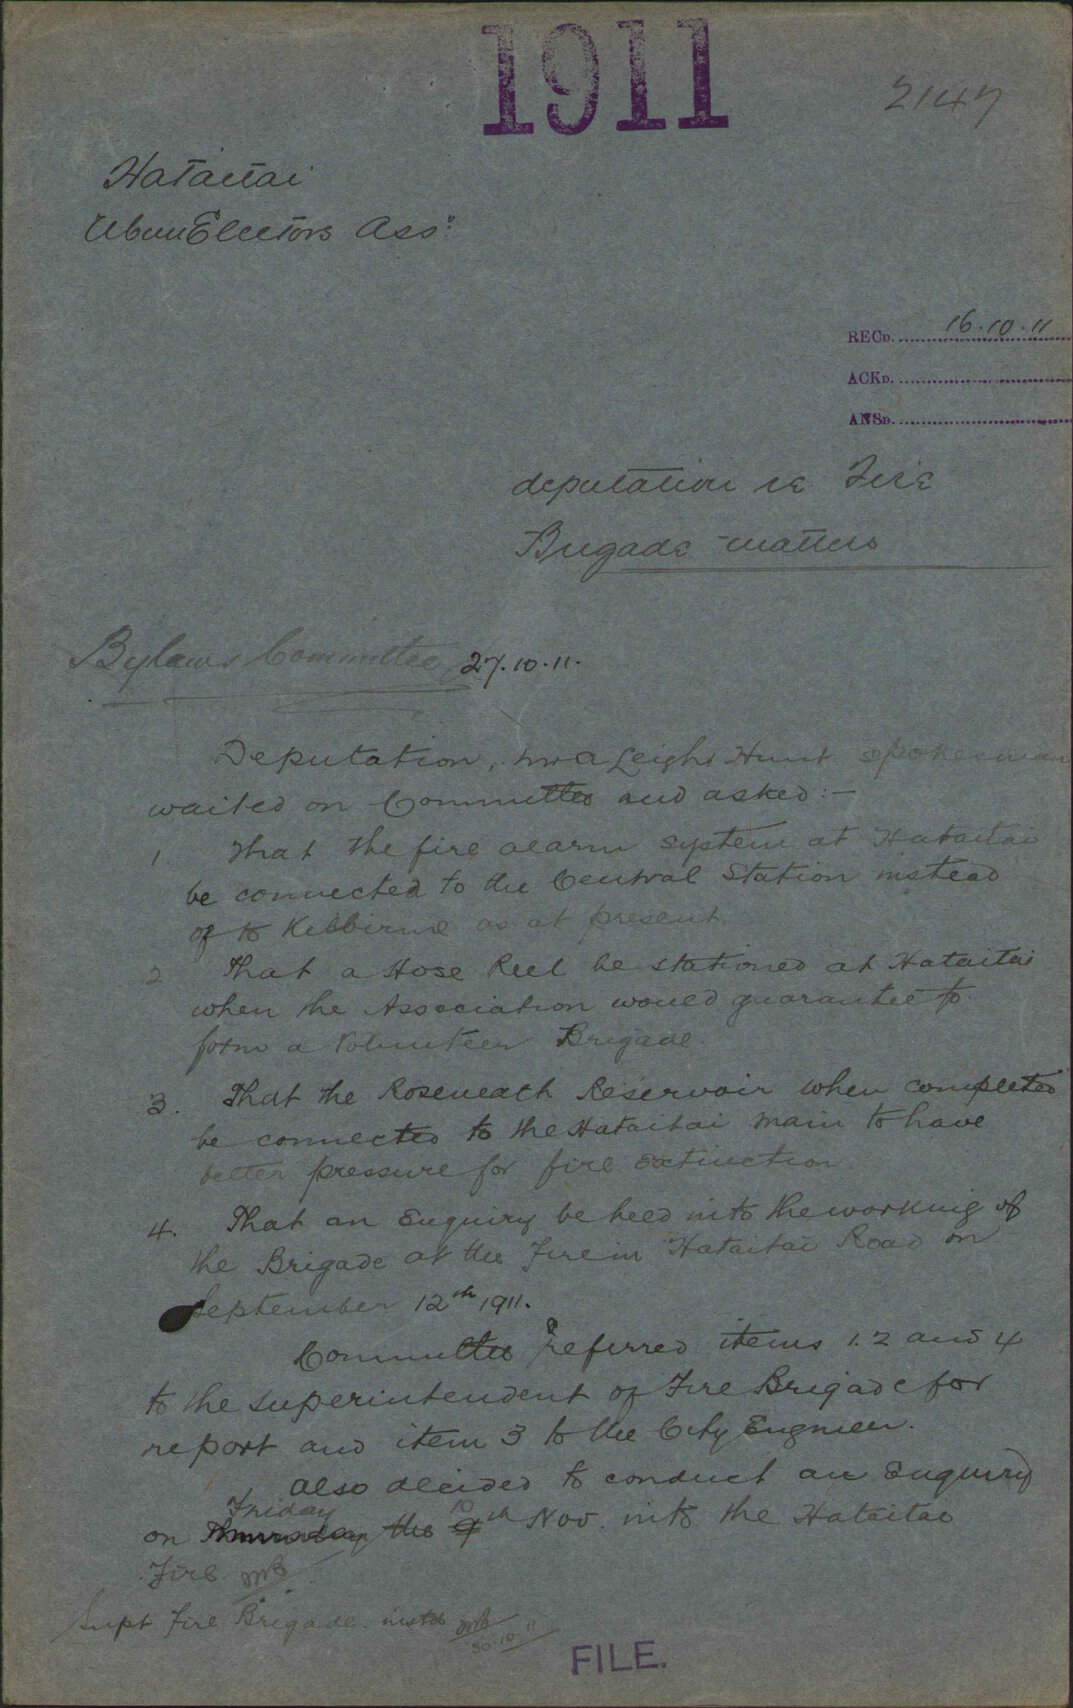 1911
2147
Hataitai
Electors Assn:
RECD. 16.10.11
ACKD.
ANSD.
deputation re Fire
Brigade matters
Bylaws Committee 27.10.11.
Deputation, Mr A Leigh Hunt spokesman
waited on Committee and asked :-
1. That the fire alarm system at Hataitai
be connected to the Central Station instead
of to Kilbirnie as at present.
2 That a Hose Reel be stationed at Hataitai
when the Association would guarantee to
form a Volunteer Brigade.
3. That the Roseneath Reservoir when completed
be connected to the Hataitai main to have
better pressure for fire extinction
4. That an Enquiry be held into the working of
the Brigade at the Fire in Hataitai Road on
September 12th 1911.
Committee referred items 1. 2 and 4
to the Superintendent of Fire Brigade for
report and item 3 to the City Engineer.
Also decided to conduct an Enquiry
Friday 10
on Thursday the 9th Nov. into the Hataitai
Fire.
Supt Fire Brigade instd
30.10.11
FILE.